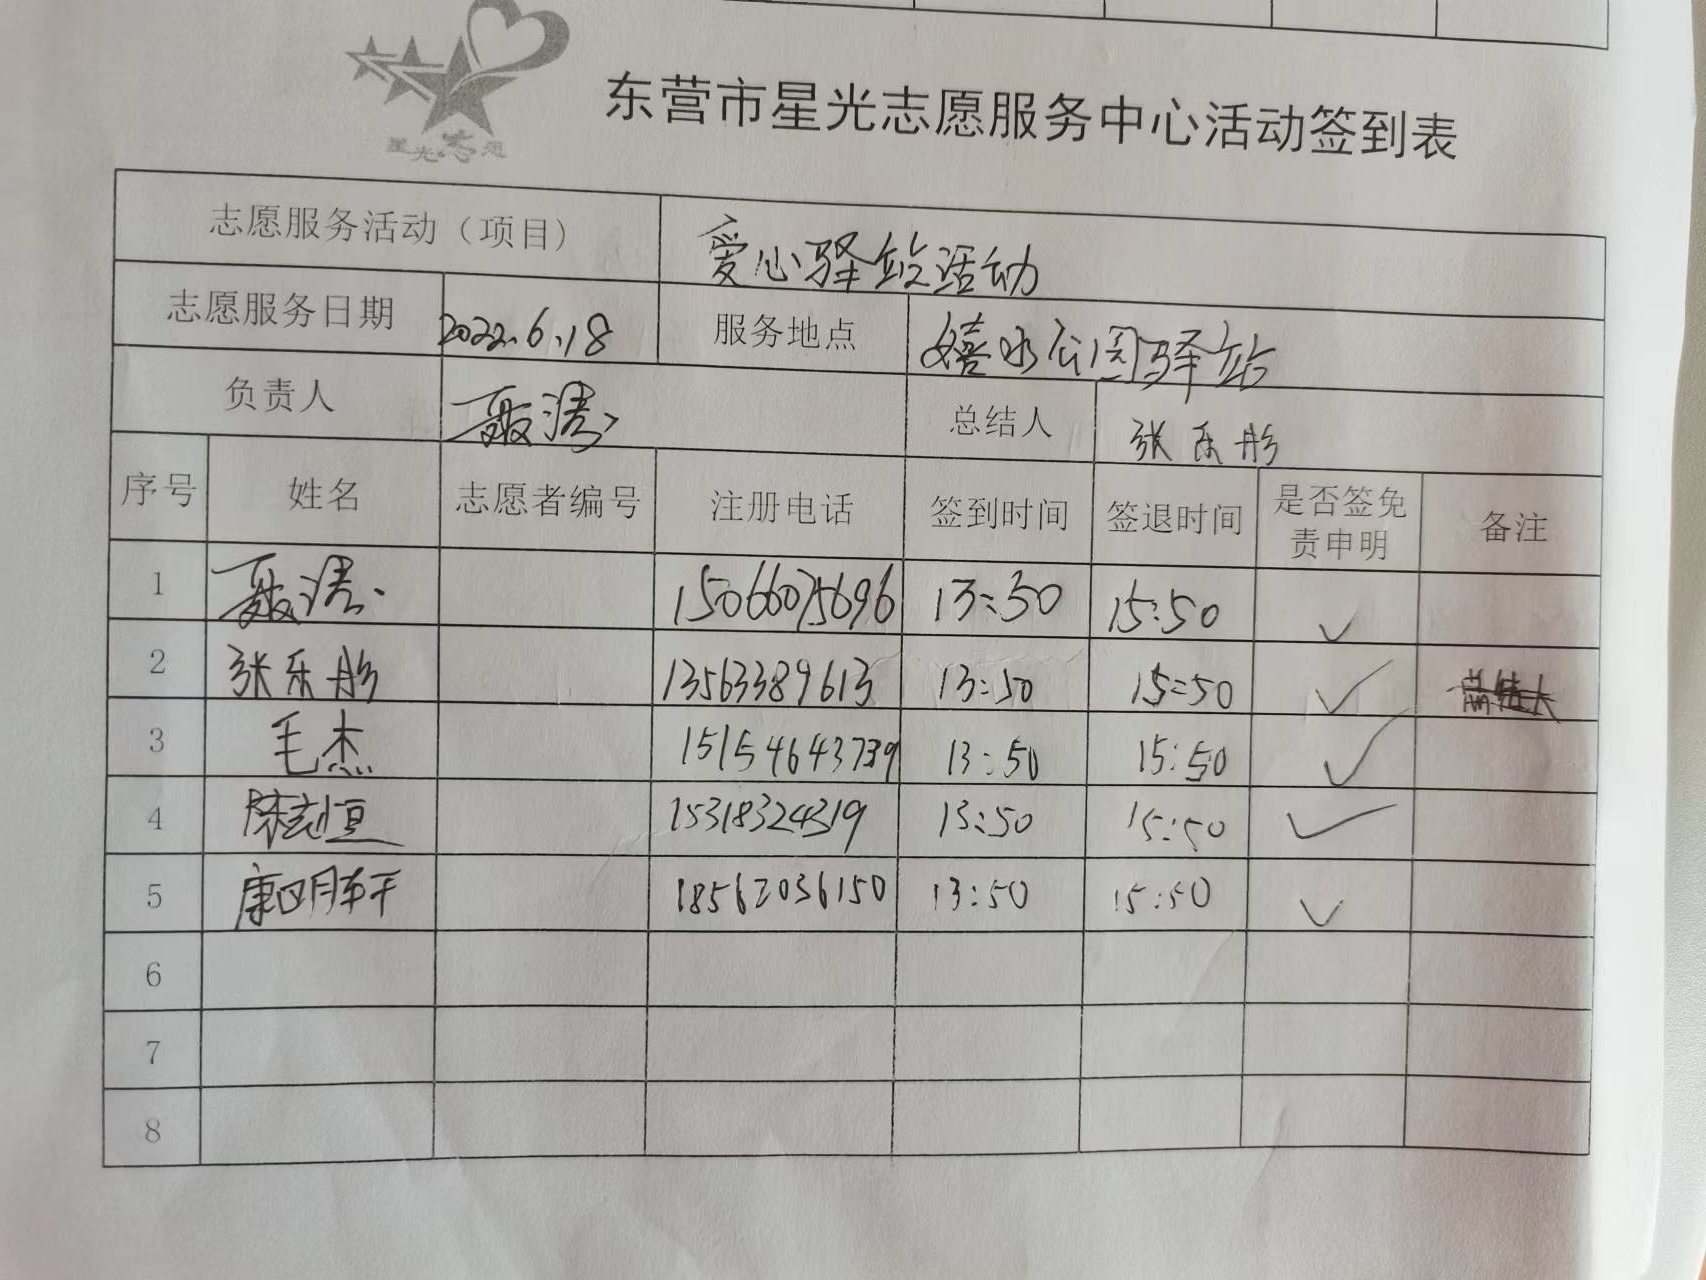 星光志愿
东营市星光志愿服务中心活动签到表
志愿服务活动（项目） 爱心驿站活动
志愿服务日期 2022.6.18 服务地点 嬉水公园驿站
负责人 聂涛 总结人 张乐彤
序号 姓名 志愿者编号 注册电话 签到时间 签退时间 是否签免责申明 备注
1 15066075696 13:50 15:50 ✓
2 张乐彤 13563389613 13:50 15:50 ✓
3 毛杰 15154643739 13:50 15:50 ✓
4 陈志恒 15318324319 13:50 15:50 ✓
5 康明轩 18562036150 13:50 15:50 ✓
6
7
8